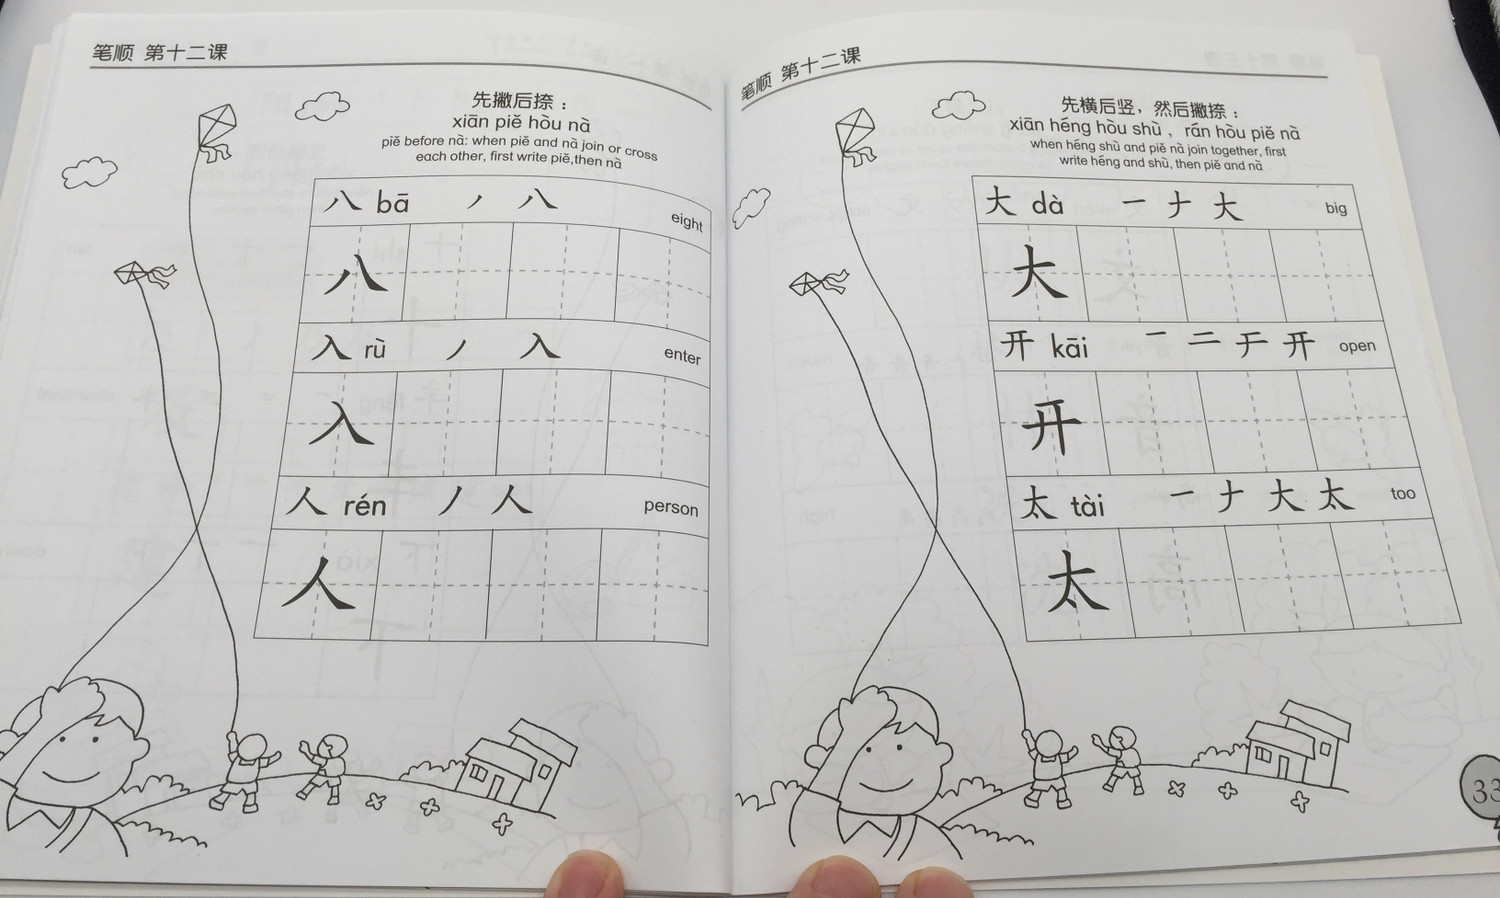 笔顺 第十二课
先撇后捺：
xiān piě hòu nà
piě before nà: when piě and nà join or cross
each other, first write piě,then nà
八 bā ノ 八 eight
八
入 rù ノ 入 enter
入
人 rén ノ 人 person
人
笔顺 第十二课
先横后竖，然后撇捺：
xiān héng hòu shù ，rán hòu piě nà
when héng shù and piě nà join together, first
write héng and shù, then piě and nà
大 dà 一 ナ 大 big
大
开 kāi 一 二 于 开 open
开
太 tài 一 ナ 大 太 too
太
33